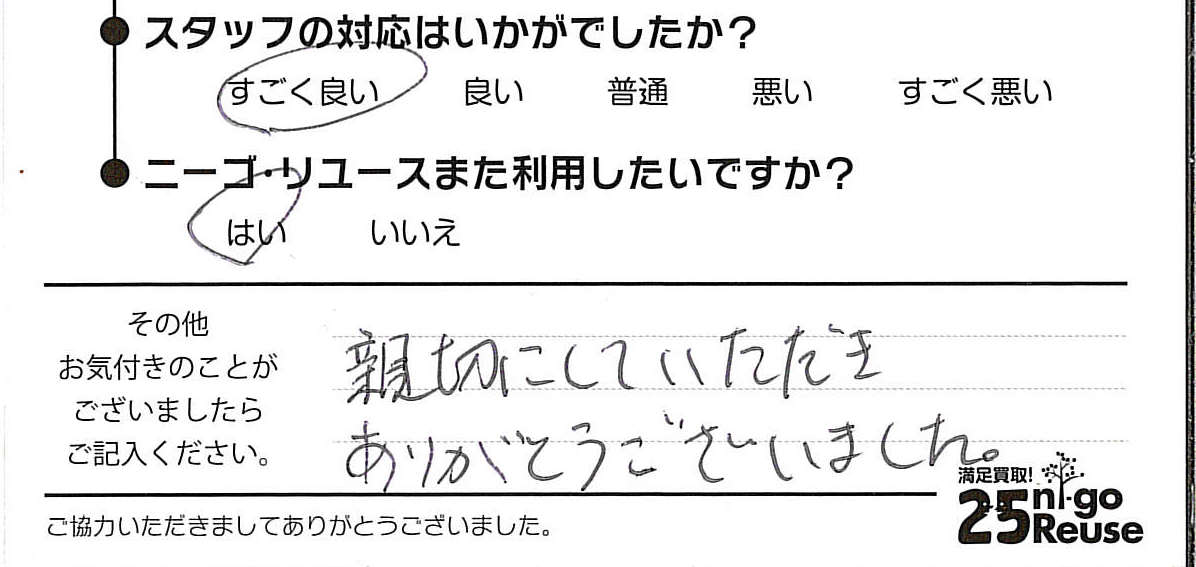 スタッフの対応はいかがでしたか？
すごく良い 良い 普通 悪い すごく悪い
ニーゴ・リユースまた利用したいですか？
はい いいえ
その他
お気付きのことが
ございましたら
ご記入ください。
親切にしていただき
ありがとうございました。
ご協力いただきましてありがとうございました。
満足買取!
25 ni-go
Reuse